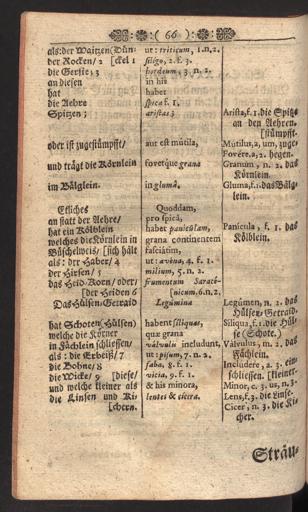 ( 66 )
als: der Waitzen (Dün-
der Rocken / 2 [ckel 1
die Gerste; 3
an diesen
hat
die Aehre
Spitzen;
oder ist zugestümpfft /
und trägt die Körnlein
im Bälglein.
Etliches
an statt der Aehre /
hat ein Kölblein
welches die Körnlein in
Büschelweis / [sich hält
als: der Haber / 4
der Hirsen / 5
das Heid-Korn / oder /
[der Heiden 6
Das Hülsen-Getraid
hat Schoten (Hülsen)
welche die Körner
in Fächlein schliessen /
als: die Erbeiß / 7
die Bohne / 8
die Wicke / 9 [diese /
und welche kleiner als
die Linsen und Ki-
[chern.
ut: triticum, 1. n. 2.
siligo, 2. f. 3.
hordeum, 3. n. 2.
in his
habet
spica f. 1.
aristas;
aut est mutila,
fovetque grana
in glumâ.
Quoddam,
pro spicâ,
habet paniculam,
grana continentem
fasciatim,
ut: avena, 4. f. 1.
milium, 5. n. 2.
frumentum Saraceni-
cum. 6. n. 2.
Legúmina
habent siliquas,
quæ grana
válvulis includunt,
ut: pisum, 7. n. 2.
faba, 8. f. 1.
vicia, 9. f. 1.
& his minora,
lentes & cicera.
Arista, f. 1. die Spitze
an den Aehren.
[stümpfft.
Mutilus, a, um, zuge-
Fovére. a. 2. hegen.
Granum, n. 2. das
Körnlein.
Gluma, f. 1. das Bälg-
lein.
Panicula, f. 1. das
Kölblein.
Legúmen, n. 2. das
Hülsen-Getraid.
Siliqua, f. 1. die Hül-
se (Schote.)
Válvulus, m. 2. das
Fächlein.
Includere, a. 3. ein-
schliessen. [kleiner.
Minor, c. 3. us, n. 3.
Lens, f. 3. die Linse.
Cicer, n. 3. die Ki-
cher.
Sträu-